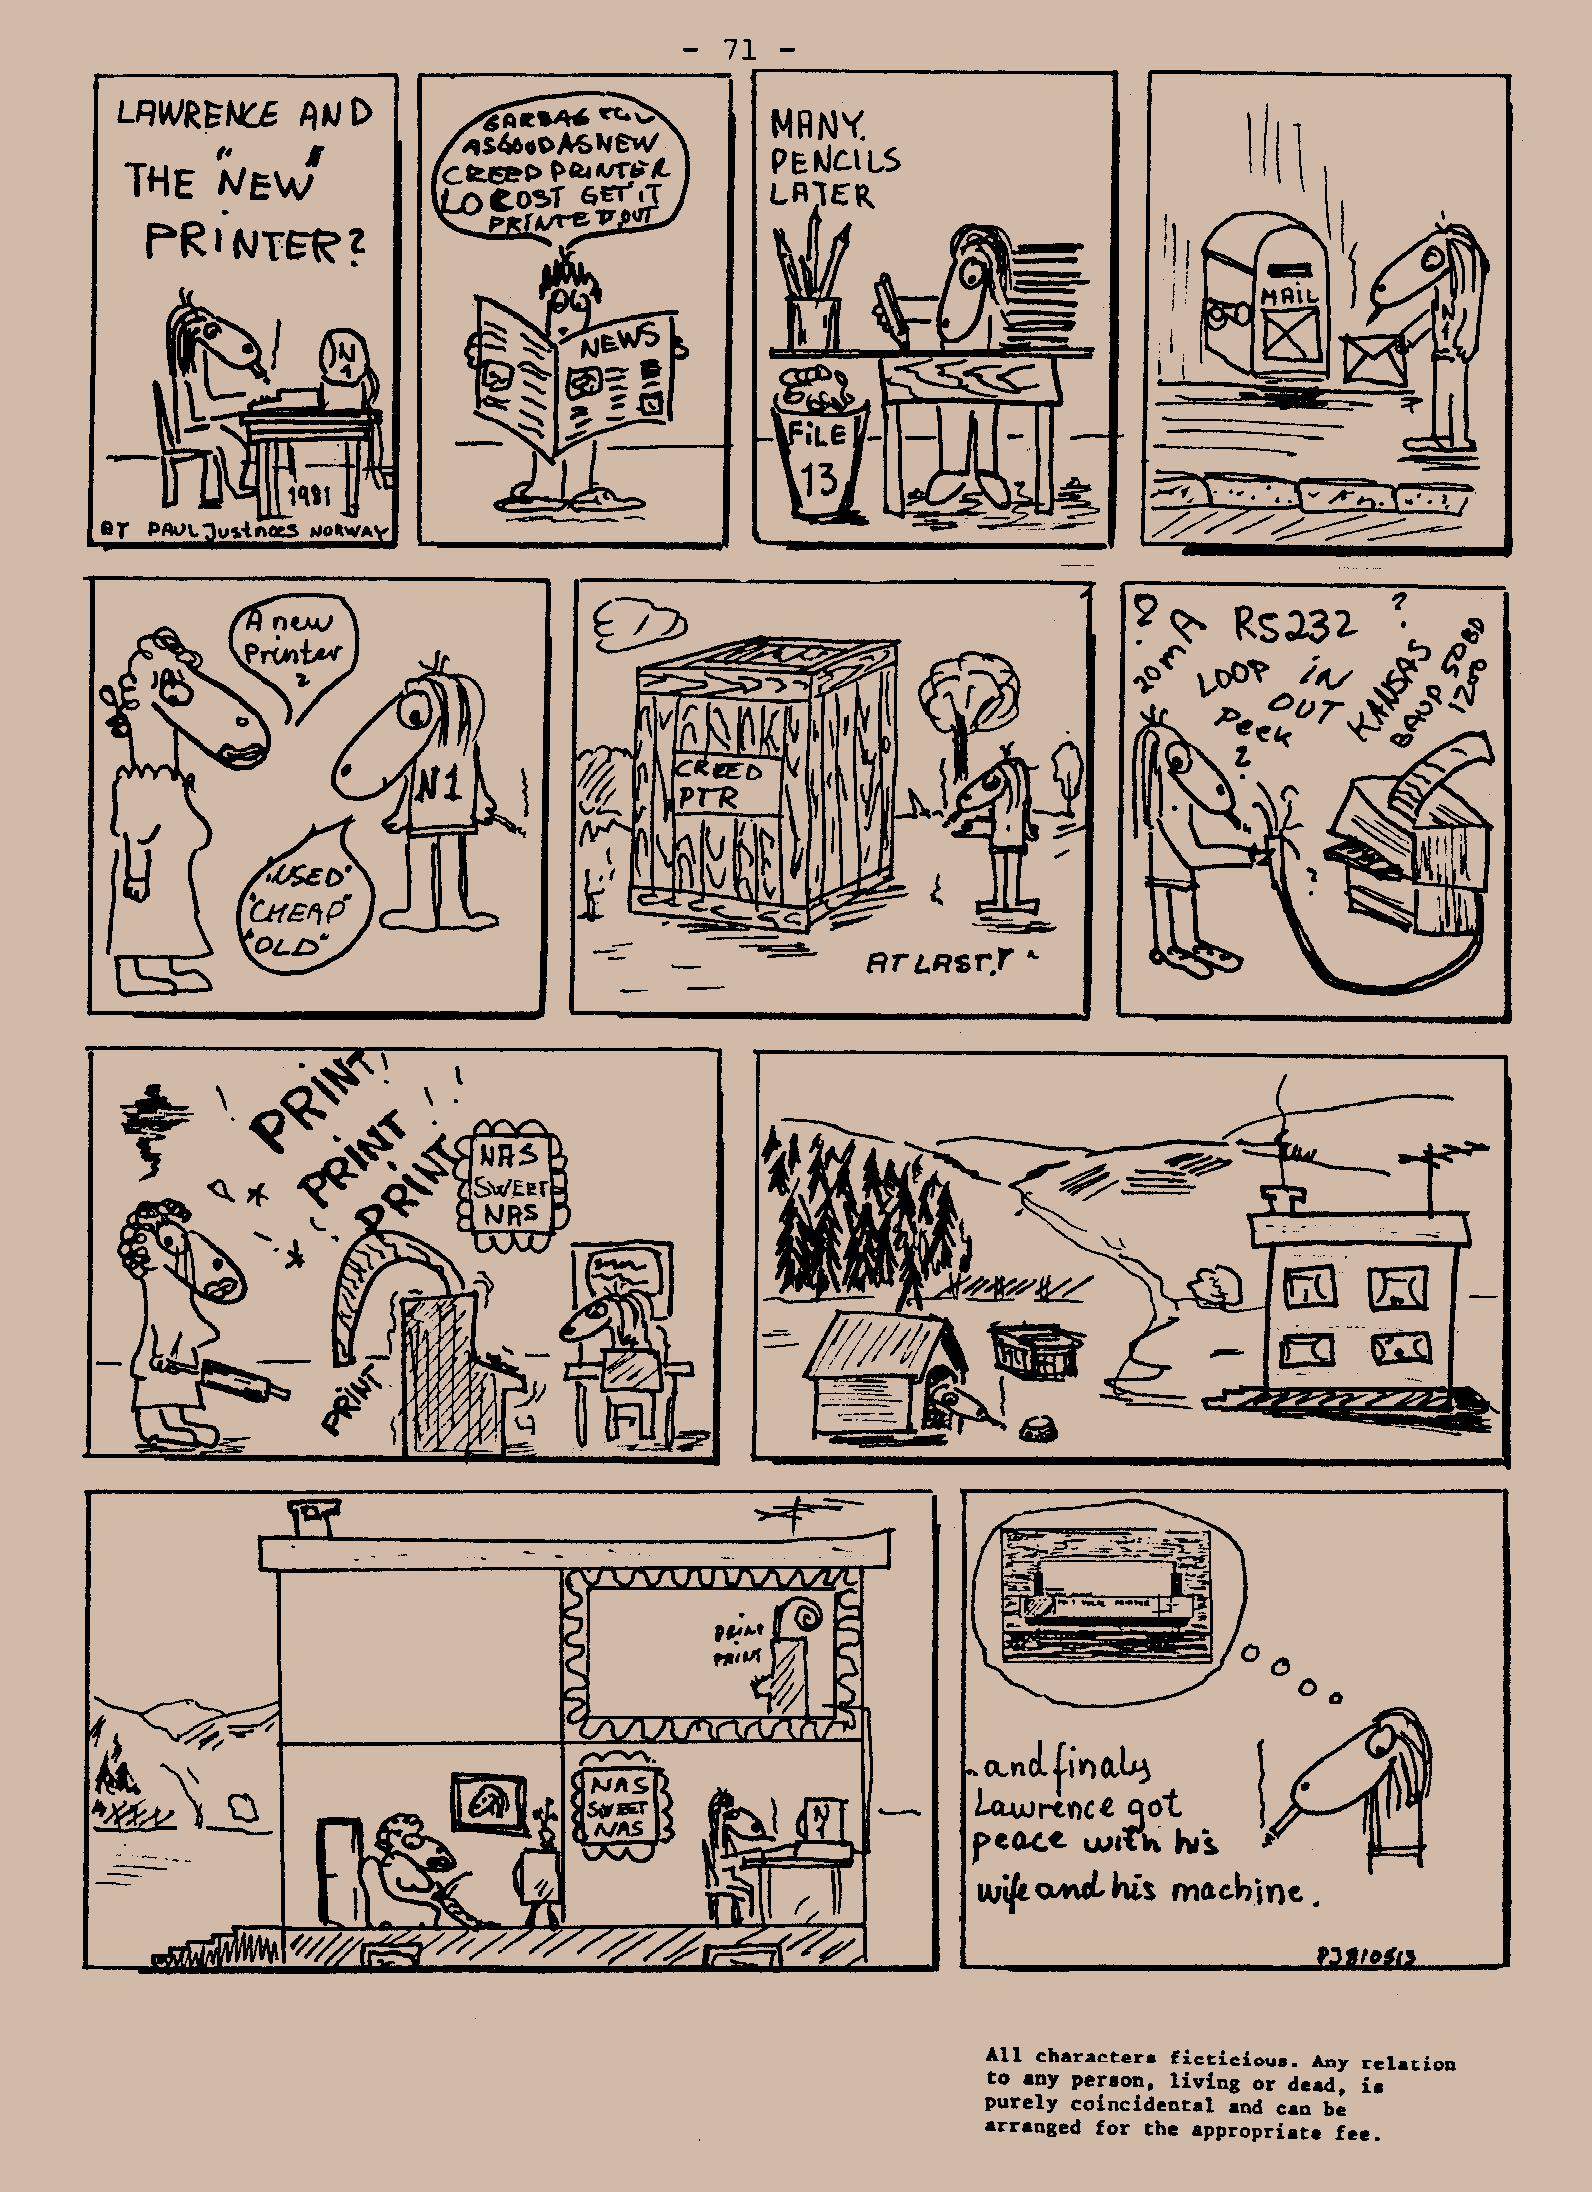 - 71 -
LAWRENCE AND
THE "NEW"
PRINTER?
N
1
1981
BY PAUL Justnæs NORWAY
GARBAG
AS GOOD AS NEW
CREED PRINTER
LO COST GET IT
PRINTED OUT
NEWS
MANY
PENCILS
LATER
FILE
13
MAIL
N
1
A new
Printer
?
N1
"USED"
"CHEAP"
"OLD"
CREED
PTR
AT LAST!
? 20mA
RS232
?
LOOP IN
OUT
Peek
?
KANSAS
BAUD 50BD
1200
?
PRINT!
PRINT
PRINT
PRINT
NAS
SWEET
NAS
PRINT
PRINT
NAS
SWEET
NAS
N
1
..and finaly
Lawrence got
peace with his
wife and his machine.
PJ810513
All characters ficticious. Any relation
to any person, living or dead, is
purely coincidental and can be
arranged for the appropriate fee.